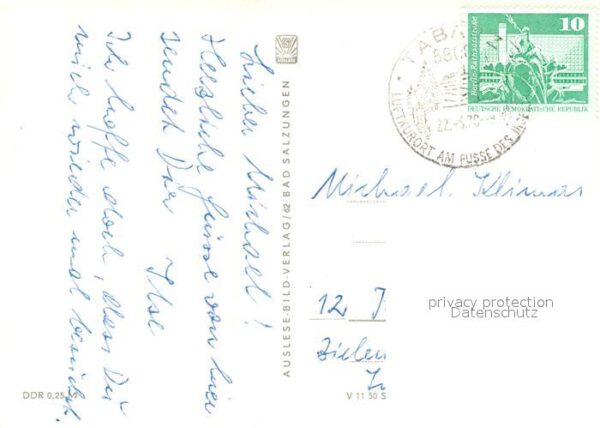 Lieber Michael!
Herzliche Grüsse von hier
sendet Dir
Ilse
Ich hoffe doch, dass Du
mich wieder mal besuchst.
AUSLESE-BILD-VERLAG/62 BAD SALZUNGEN
DDR 0,25 M
V 11 50 S
10
Berlin-Rathausstraße
DEUTSCHE DEMOKRATISCHE REPUBLIK
TABA
LUFTKURORT AM FUSSE DES IN
Michael Klimas
12
privacy protection
Datenschutz